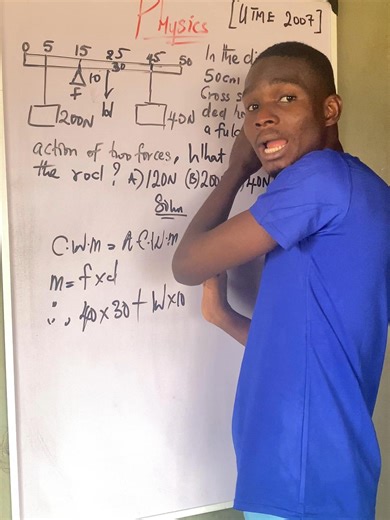 Physics
[UTME 2007]
0 5 15 25 45 50
30
10
f
W
200N
40N
In the di
50cm
Cross s
ded ho
a fulc
action of two forces, What
the rod? A) 120N (B) 200 40N
Soln
C.W.M = A.C.W.M
M = f x d
∴, 40 x 30 + W x 10